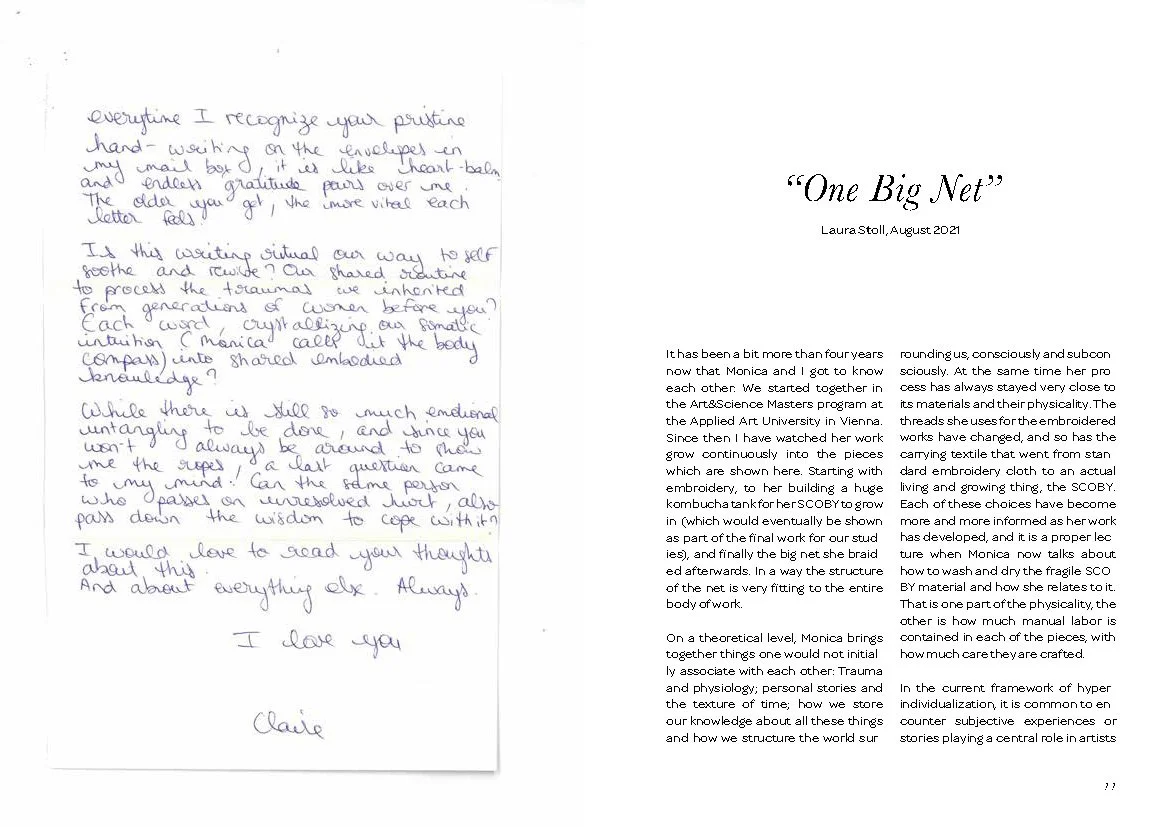 everytime I recognize your pristine
hand-writing on the envelopes in
my mail box, it is like heart-balm
and endless gratitude pours over me.
The older you get, the more vital each
letter feels.
Is this writing ritual our way to self
soothe and rewire? Our shared routine
to process the traumas we inherited
from generations of women before you?
Each word, crystallizing our somatic
intuition (Monica calls it the body
compass) into shared embodied
knowledge?
While there is still so much emotional
untangling to be done, and since you
won't always be around to show
me the ropes, a last question came
to my mind: Can the same person
who passes on unresolved hurt, also
pass down the wisdom to cope with it?
I would love to read your thoughts
about this.
And about everything else. Always.
I love you
Claire
“One Big Net”
Laura Stoll, August 2021
It has been a bit more than four years
now that Monica and I got to know
each other. We started together in
the Art&Science Masters program at
the Applied Art University in Vienna.
Since then I have watched her work
grow continuously into the pieces
which are shown here. Starting with
embroidery, to her building a huge
kombucha tank for her SCOBY to grow
in (which would eventually be shown
as part of the final work for our stud
ies), and finally the big net she braid
ed afterwards. In a way the structure
of the net is very fitting to the entire
body of work.
On a theoretical level, Monica brings
together things one would not initial
ly associate with each other: Trauma
and physiology; personal stories and
the texture of time; how we store
our knowledge about all these things
and how we structure the world sur
rounding us, consciously and subcon
sciously. At the same time her pro
cess has always stayed very close to
its materials and their physicality. The
threads she uses for the embroidered
works have changed, and so has the
carrying textile that went from stan
dard embroidery cloth to an actual
living and growing thing, the SCOBY.
Each of these choices have become
more and more informed as her work
has developed, and it is a proper lec
ture when Monica now talks about
how to wash and dry the fragile SCO
BY material and how she relates to it.
That is one part of the physicality, the
other is how much manual labor is
contained in each of the pieces, with
how much care they are crafted.
In the current framework of hyper
individualization, it is common to en
counter subjective experiences or
stories playing a central role in artists